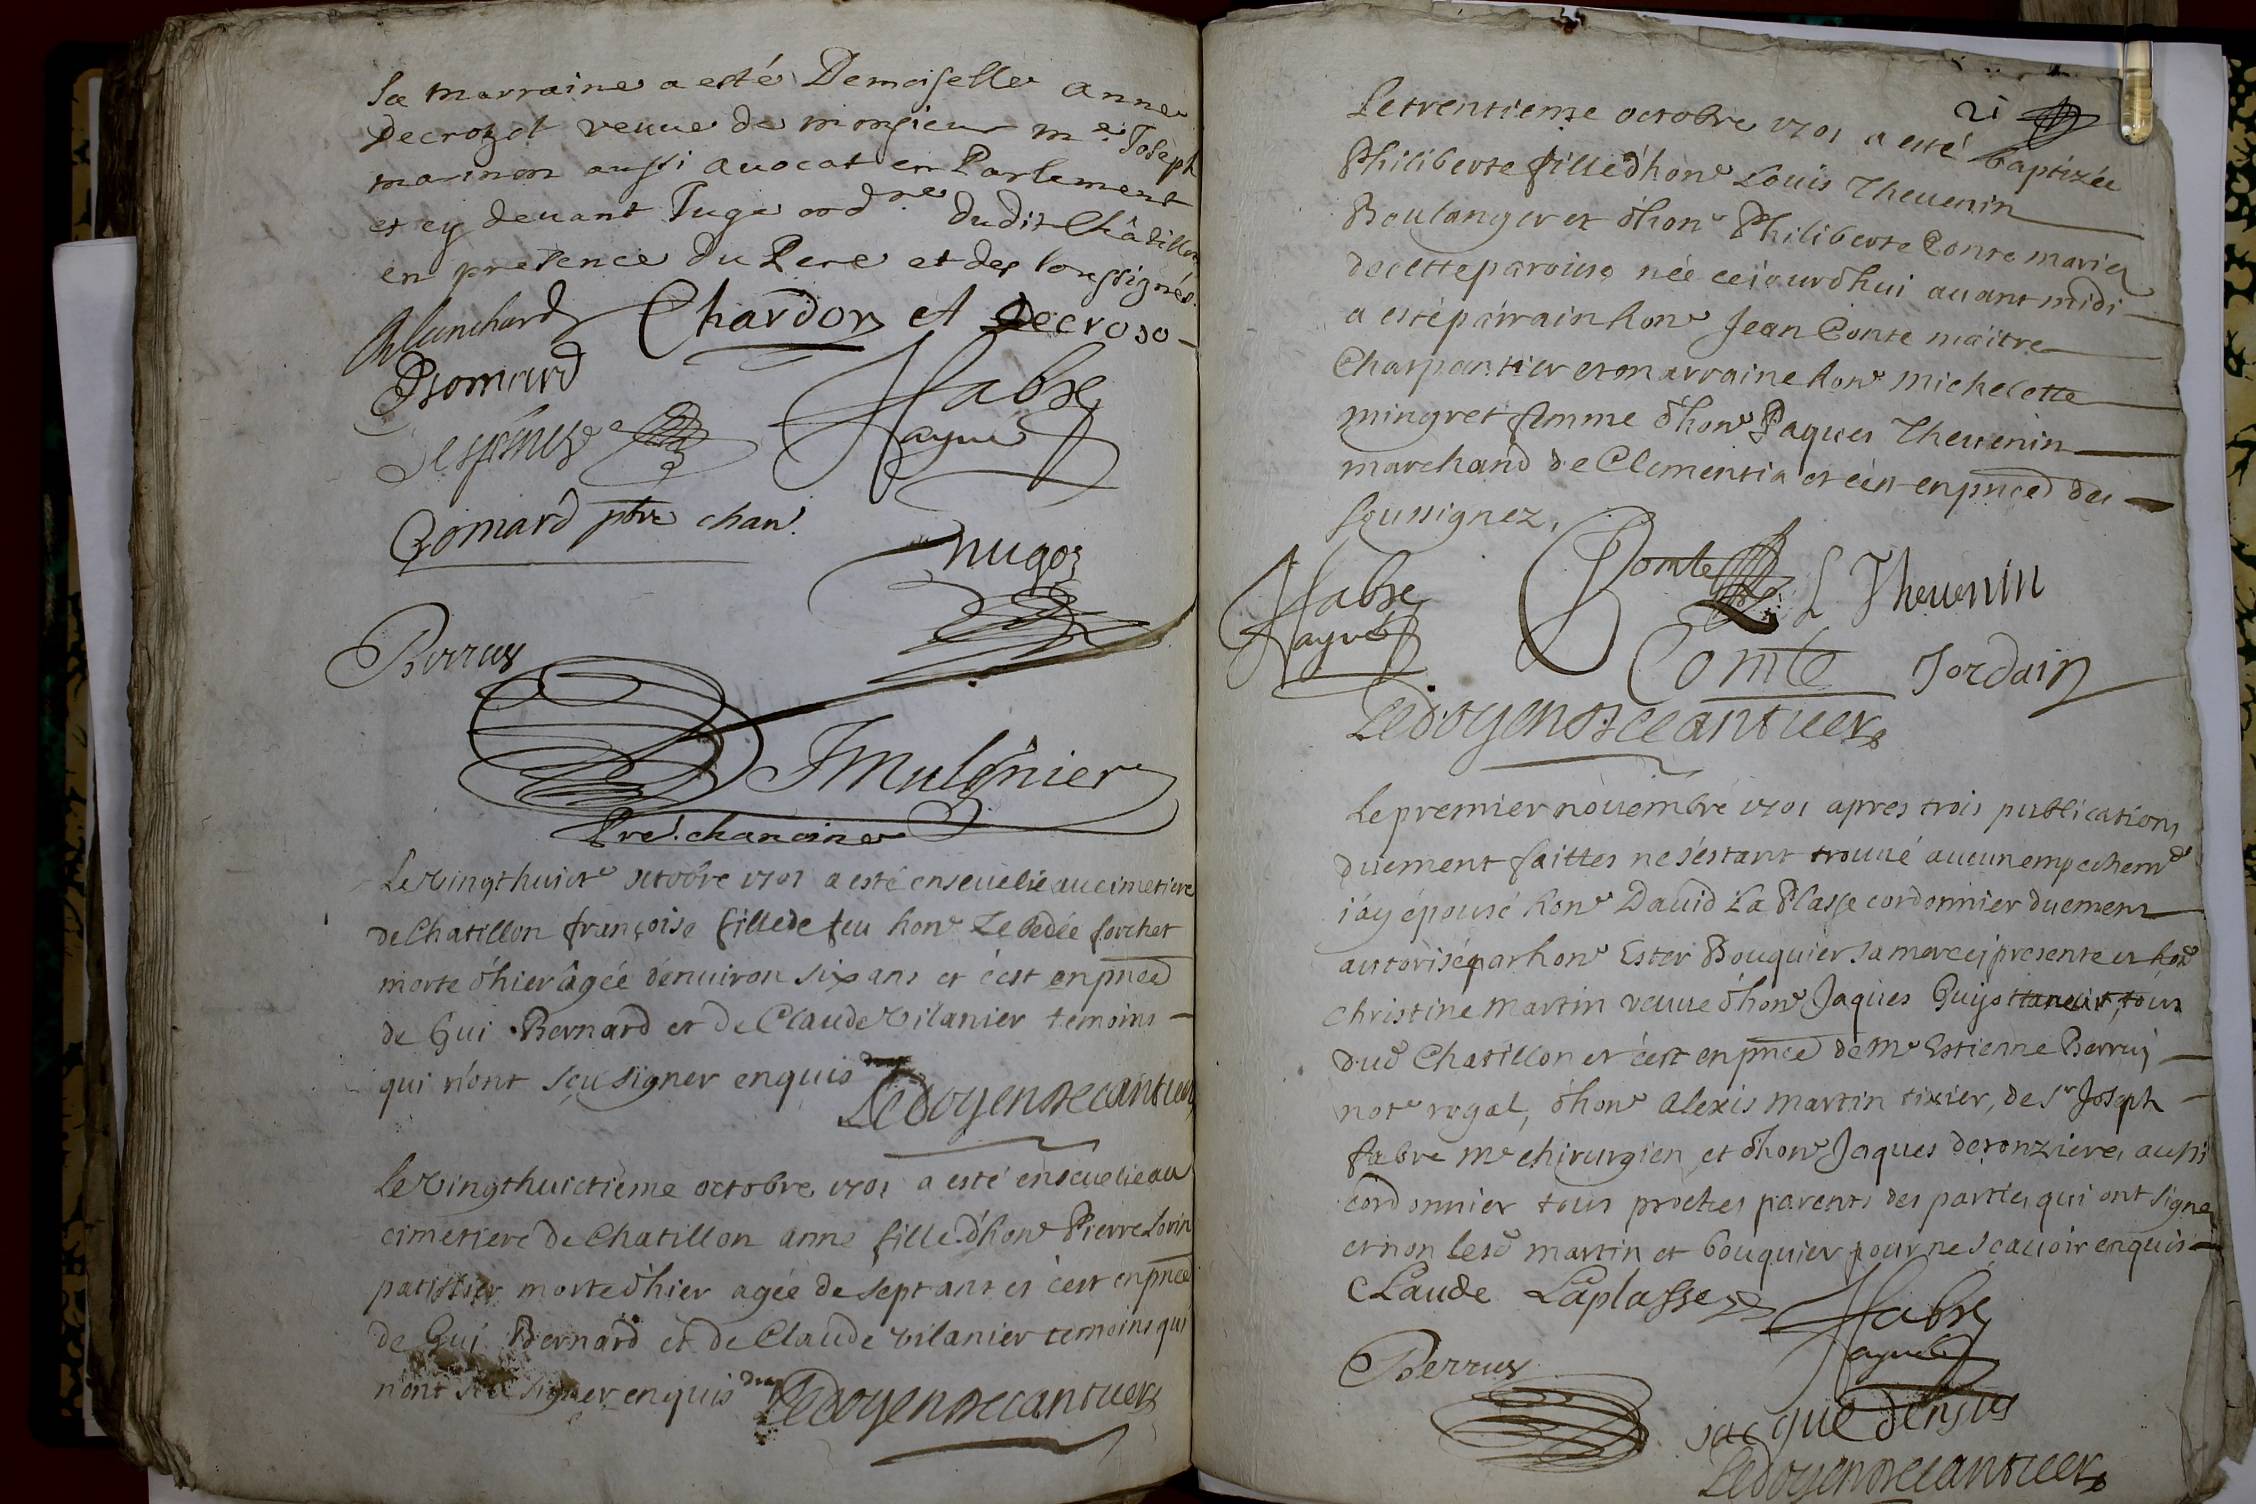 La marraine a esté Demoiselle anne
Decrozet veuue de monsieur me. Joseph
mainon aussi auocat en Parlement
et cy deuant Juge ordre. dudit Châtillon
en presence du Pere et des soussignés.
Blanchard Chardon et Decroso
Bomard
Fabre
ayné
Bomard pbre chan.
nugoz
Perruy
JMulsnier
Pre. chanoine
Le vingthuicte octobre 1701 a esté enseuelie au cimetiere
de Chatillon françoise fille de feu hone Zebedée forchet
morte d'hier âgée d'enuiron six ans et c'est en pnce
de Gui Bernard et de Claude vilanier temoins
qui n'ont sçu signer enquis
Ledoyen de cantuer
Le vingthuictieme octobre 1701 a esté enseuelie au
cimetiere de Chatillon anne fille d'hone Pierre Lorin
patissier morte d'hier agée de sept ans et c'est en pnce
de Gui Bernard et de Claude vilanier temoins qui
n'ont sçu signer enquis
Ledoyen de cantuer
21
Le trentieme octobre 1701 a esté baptizée
Philiberte fille d'hone Louis Theuenin
Boulanger et d'hone Philiberte Conte mariez
de cette paroisse née ceiourdhui auant midi
a esté parrain hone Jean Conte maître
Charpantier et marraine hone michelette
mingret femme d'hone Jaques Theuenin
marchand de Clementia et c'est en pnce des
soussignez,
Fabre
ayné
Comte
L Theuenin
Comte Jordain
Ledoyen de cantuer
Le premier nouembre 1701 apres trois publications
duement faittes ne s'estant trouué aucun empechemt
i'ay épousé hone Dauid La Plasse cordonnier duement
autorisé par hone Ester Bouquier sa mere ci presente et hone
Christine martin veuue d'hone Jaques Guyot taneur, tous
dud Chatillon et c'est en pnce de Me Estienne Perruy
note royal, d'hone Alexis martin tixier, de Sr Joseph
fabre me chirurgien et d'hone Jaques deronziere, aussi
cordonnier tous proches parents des parties qui ont signé
et non lesd martin et bouquier pour ne scauoir enquis
CLaude Laplasse
Fabre
ayné
Perruy
jacque
Ledoyen de cantuer